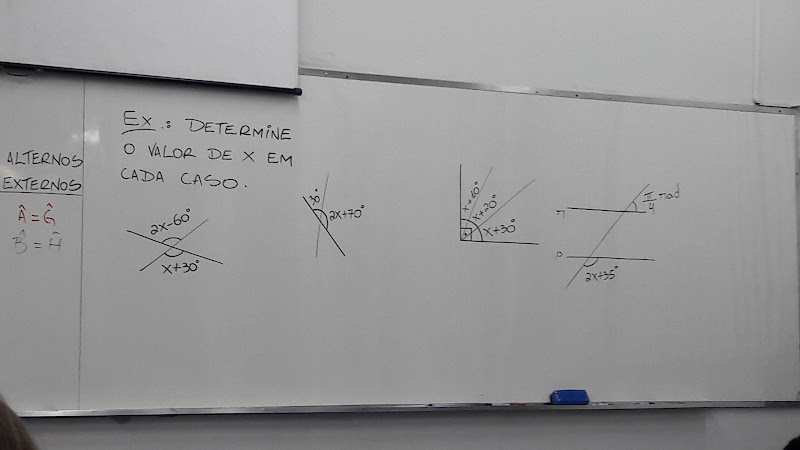 ALTERNOS
EXTERNOS
Â = Ĝ
B̂ = Ĥ
Ex.: DETERMINE
O VALOR DE X EM
CADA CASO.
2x-60°
x+30°
30°
2x+70°
x+10°
x+20°
x+30°
π/4 rad
2x+35°